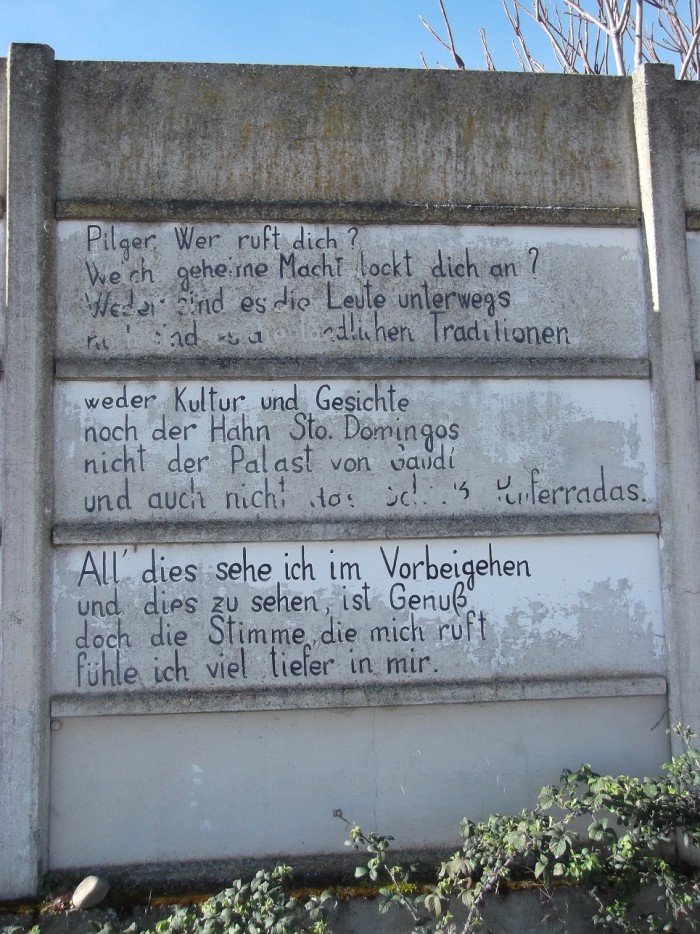 Pilger, Wer ruft dich ?
Welch geheime Macht lockt dich an ?
Weder sind es die Leute unterwegs
noch sind ländlichen Traditionen
weder Kultur und Gesichte
noch der Hahn Sto. Domingos
nicht der Palast von Gaudí
und auch nicht Ponferradas.
All' dies sehe ich im Vorbeigehen
und dies zu sehen, ist Genuß,
doch die Stimme, die mich ruft
fühle ich viel tiefer in mir.